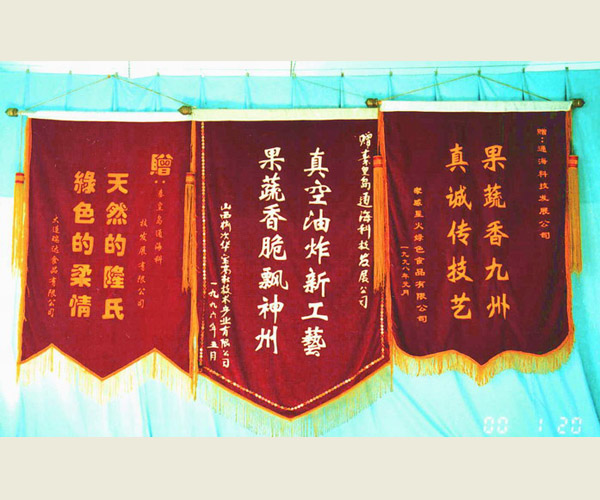 贈：秦皇岛通海科
技发展有限公司
天然的隆氏
綠色的柔情
食品有限公司
赠秦皇岛通海科技发展公司
真空油炸新工藝
果蔬香脆飘神州
山西榆次华宝高新技术产业有限公司
一九九六年五月
赠：通海科技发展公司
果蔬香九州
真诚传技艺
星火绿色食品有限公司
一九九八年元月
00 1 20